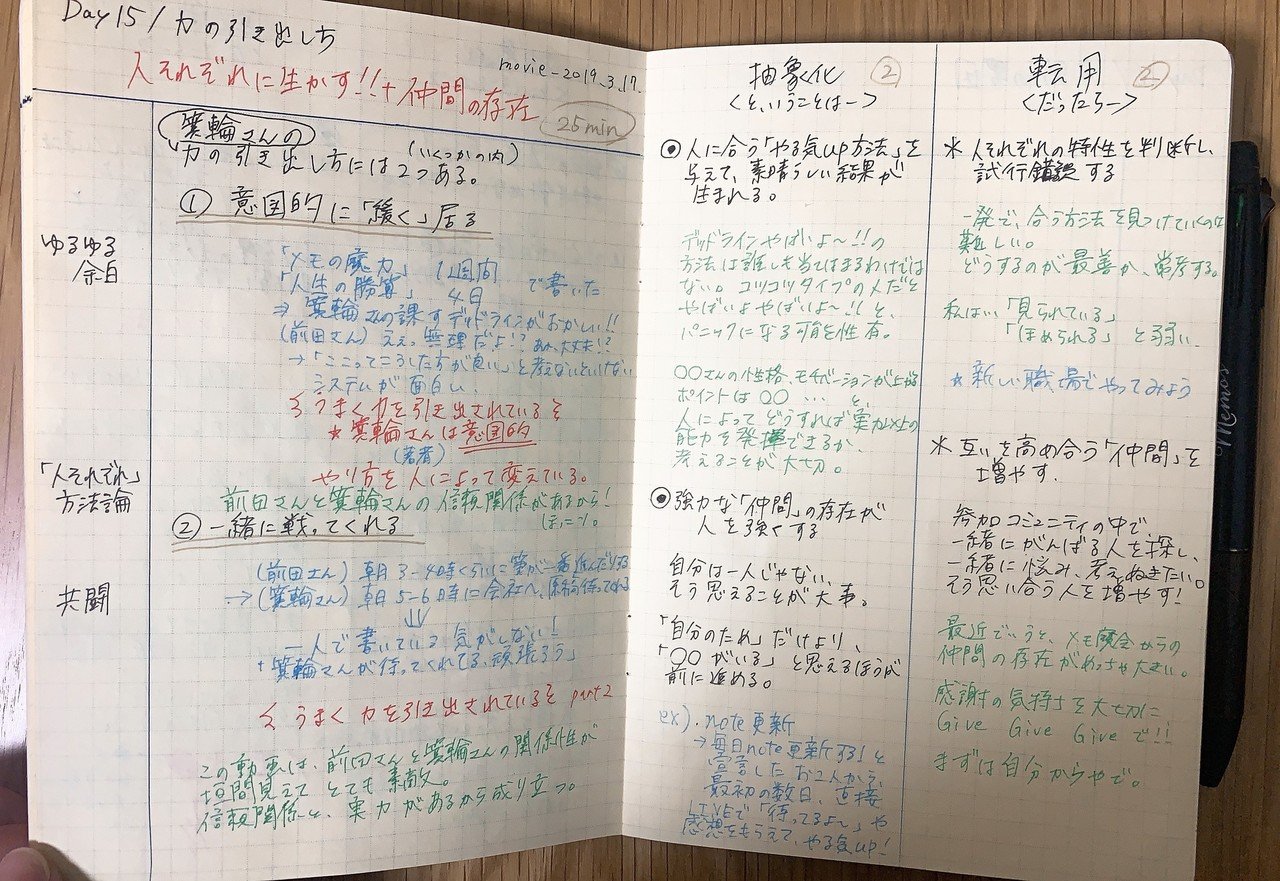 Day 15 / 力の引き出し方
movie-2019.3.17.
人それぞれに生かす!!+仲間の存在
25min
箕輪さんの
力の引き出し方には2つある。
(いくつかの内)
① 意図的に「緩く」居る
ゆるゆる
余白
「メモの魔力」 1週間
「人生の勝算」 4日 で書いた
⇒ 箕輪さんの課すデッドラインがおかしい!!
(前田さん) ええ、無理だよ!? あ、大丈夫!?
→「ここってこうした方が良い」と考えないといけない
システムが面白い、
うまく力を引き出されているぞ
★ 箕輪さんは意図的
(著者)
やり方を人によって変えている。
「人それぞれ」
方法論
前田さんと箕輪さんの信頼関係があるから!
② 一緒に戦ってくれる
共闘
(前田さん) 朝3-4時くらいに筆が一番進んだりする
→(箕輪さん) 朝5-6時に会社へ、原稿待ってくれる
⇓
一人で書いている気がしない!
+箕輪さんが待ってくれてる、頑張ろう」
うまく力を引き出されているぞ part2
この動画は、前田さんと箕輪さんの関係性が
垣間見えて とても素敵。
信頼関係と、実力があるから成り立つ。
抽象化 ②
<と、いうことは->
◉ 人に合う「やる気up方法」を
与えて、素晴らしい結果が
生まれる。
デッドラインやばいよ〜!!の
方法は誰しも当てはまるわけでは
ない。コツコツタイプの人だと
やばいよやばいよ〜!!と、
パニックになる可能性有。
〇〇さんの性格、モチベーションが上がる
ポイントは〇〇 … と、
人によってどうすれば実力以上の
能力を発揮できるか
考えることが大切。
◉ 強力な「仲間」の存在が
人を強くする
自分は一人じゃない、
そう思えることが大事。
「自分のため」だけより、
「〇〇がいる」と思えるほうが
前に進める。
ex). note更新
→毎日note更新する!と
宣言したお2人から、
最初の数日、直接
LIVEで「待ってるよ〜」や
感想をもらえて、やる気up!
転用 ②
<だったら->
* 人それぞれの特性を判断し、
試行錯誤する
一発で、合う方法を見つけていくのは
難しい。
どうするのが最善か、常考する。
私は、「見られている」
「ほめられる」と弱い、
★新しい職場でやってみよう
* 互いを高め合う「仲間」を
増やす.
参加コミュニティの中で
一緒にがんばる人を探し、
一緒に悩み、考えぬきたい。
そう思い合う人を増やす!
最近でいうと、メモ魔会からの
仲間の存在がめっちゃ大きい。
感謝の気持ちを大切に
Give Give Give で!!
まずは自分からやで。
Memos